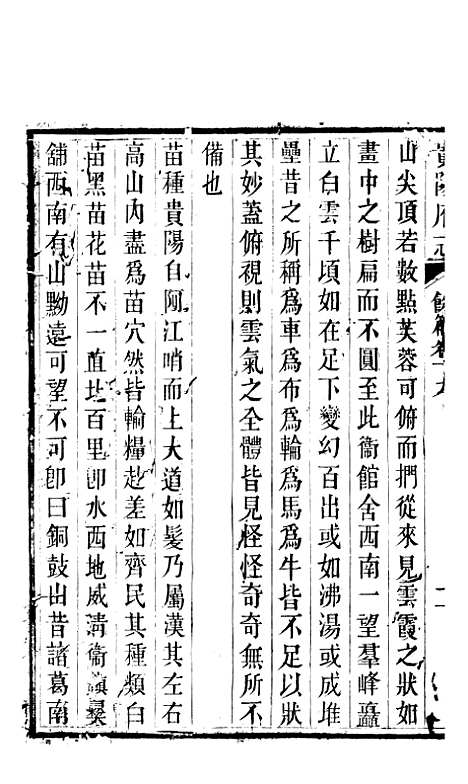 貴陽府志 餘編卷十九 二
山尖頂若數點芙蓉可俯而捫從來見雲霞之狀如
畫中之樹扁而不圓至此衞館舍西南一望羣峰矗
立白雲千頃如在足下變幻百出或如沸湯或成堆
壘昔之所稱爲車爲布爲輪爲馬爲牛皆不足以狀
其妙蓋俯視則雲氣之全體皆見怪怪奇奇無所不
備也
苗種貴陽自阿江哨而上大道如髮乃屬漢其左右
高山內盡爲苗穴然皆輸糧赴差如齊民其種類白
苗黑苗花苗不一直北百里卽水西地威清衞
舖西南有山黝遠可望不可卽曰銅鼓出昔諸葛南